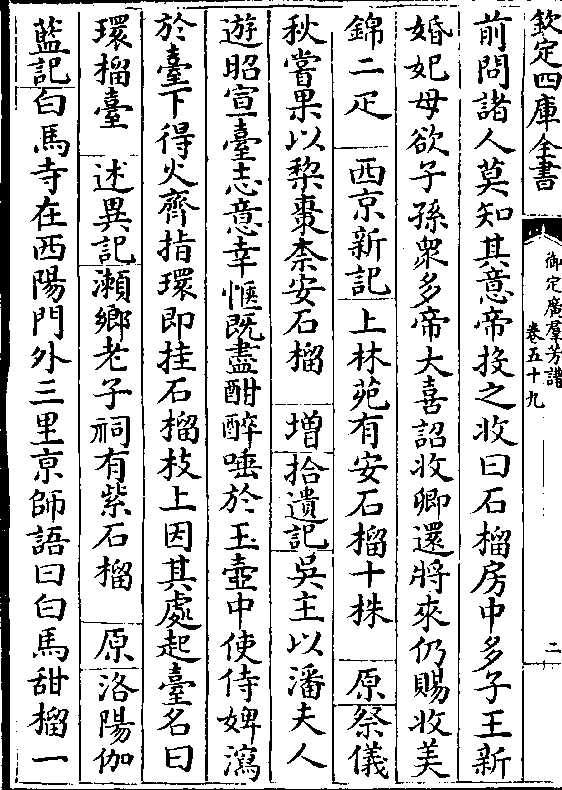 欽定四庫全書
御定廣羣芳譜
卷五十九
二
前問諸人莫知其意帝投之收曰石榴房中多子王新
婚妃母欲子孫衆多帝大喜詔收卿還將來仍賜收美
錦二疋 西京新記上林苑有安石榴十株 原祭儀
秋嘗果以棃棗柰安石榴 増拾遺記吳主以潘夫人
遊昭宣臺志意幸愜既盡酣醉唾於玉壺中使侍婢瀉
於臺下得火齊指環即挂石榴枝上因其處起臺名曰
環榴臺 述異記瀬鄉老子祠有紫石榴 原洛陽伽
藍記白馬寺在西陽門外三里亰師語曰白馬甜榴一